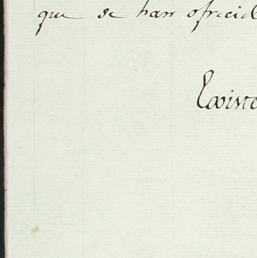 que se han ofrecid
Existe